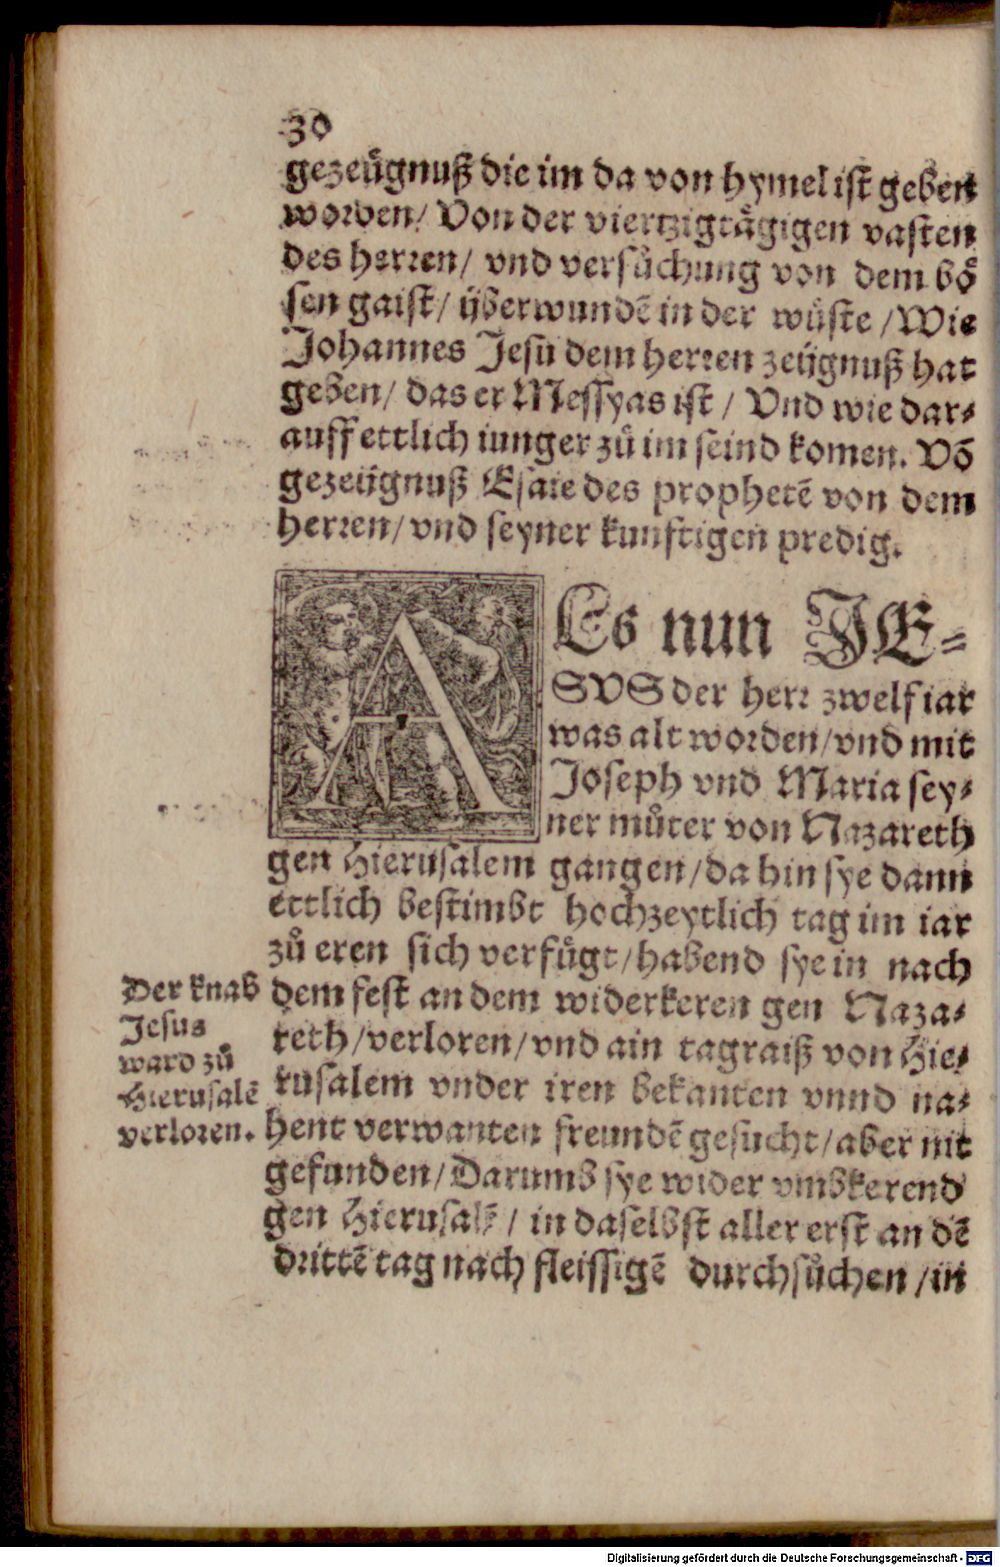 30
gezeügnuß die im da von hymel ist geben
worden/ Von der viertzigtägigen vasten
des herren/ vnd versuͤchung von dem boͤ
sen gaist/ überwundē in der wuͤste /Wie
Johannes Jesu dem herren zeügnuß hat
geben/ das er Messyas ist / Vnd wie dar⸗
auff ettlich iunger zuͦ im seind komen. Võ
gezeügnuß Esaie des prophetē von dem
herren/ vnd seyner kunftigen predig.
AEs nun JE⸗
SVS der herr zwelf iar
was alt worden/vnd mit
Joseph vnd Maria sey⸗
ner muͦter von Nazareth
gen Hierusalem gangen/da hin sye dann
ettlich bestimbt hochzeytlich tag im iar
zuͦ eren sich verfuͤgt/habend sye in nach
dem fest an dem widerkeren gen Naza⸗
reth/verloren/vnd ain tagraiß von Hie⸗
rusalem vnder iren bekanten vnnd na⸗
hent verwanten freundē gesucht/aber nit
gefunden/Darumb sye wider vmbkerend
gen Hierusalē / in daselbst aller erst an dē
drittē tag nach fleissigē durchsuͦchen /in
Der knab
Jesus
ward zuͦ
Hierusalē
verloren.
Digitalisierung gefördert durch die Deutsche Forschungsgemeinschaft - DFG